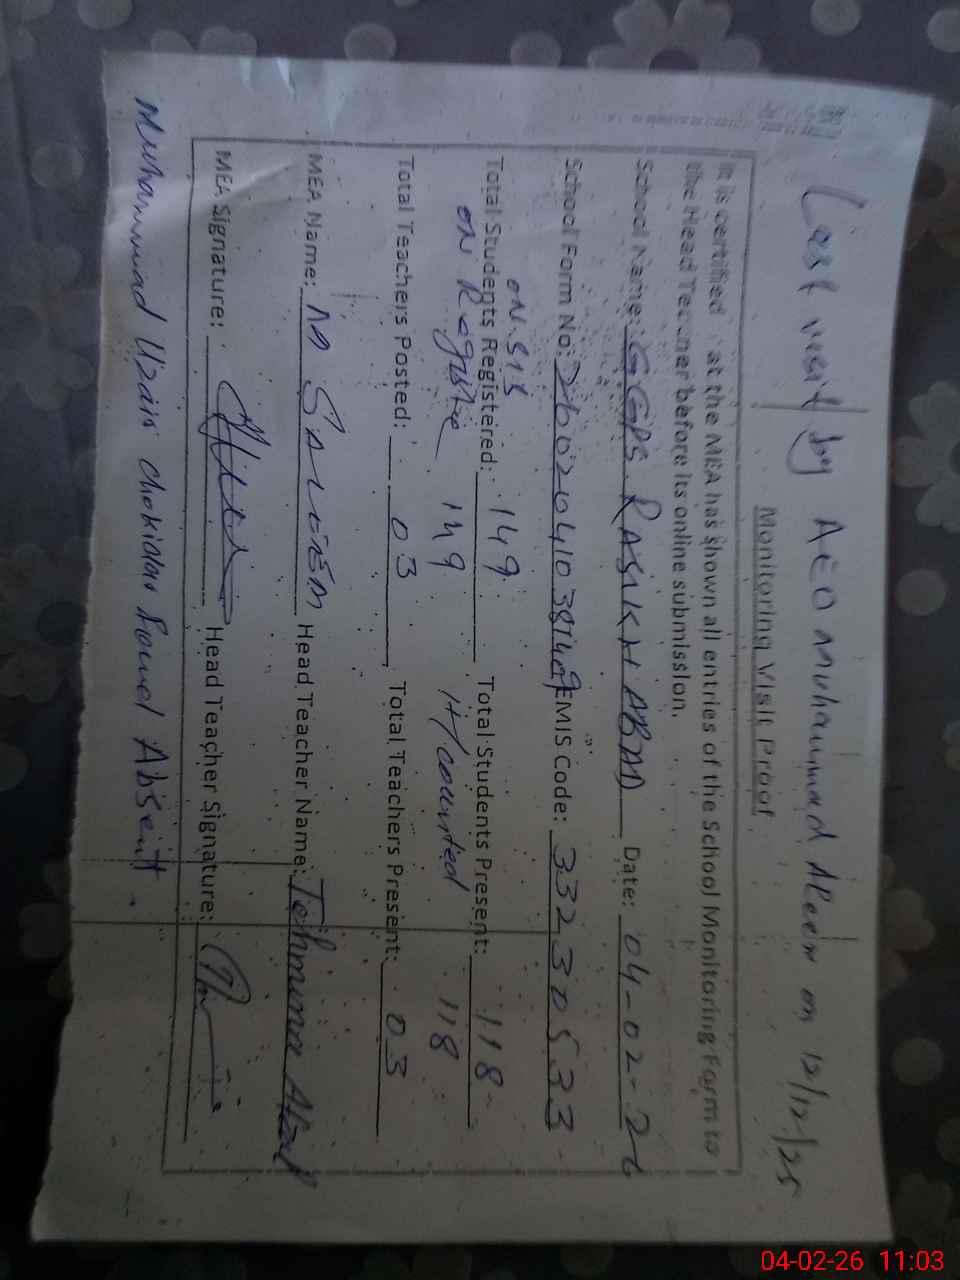 Last visit by AEO Muhammad Aleem on 12/12/25
Monitoring Visit Proof
It is certified that the MEA has shown all entries of the School Monitoring Form to
the Head Teacher before its online submission.
School Name: GGPS RASIKH ABAD Date: 04-02-26
School Form No: EMIS Code: 33230533
ON. SIS
Total Students Registered: 149 Total Students Present: 118
ON Registre 149 H/counted 118
Total Teachers Posted: 03 Total Teachers Present: 03
MEA Name: M SALEEM Head Teacher Name: Tehmina
MEA Signature: Head Teacher Signature:
Muhammad Uzair chokidar found Absent.
04-02-26 11:03